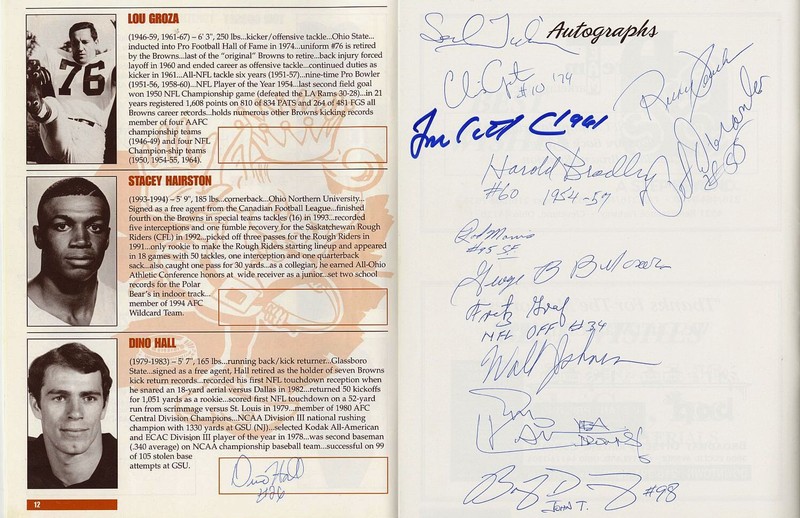 LOU GROZA
(1946-59, 1961-67) – 6' 3", 250 lbs...kicker/offensive tackle...Ohio State...
inducted into Pro Football Hall of Fame in 1974...uniform #76 is retired
by the Browns...last of the "original" Browns to retire...back injury forced
layoff in 1960 and ended career as offensive tackle...continued duties as
kicker in 1961...All-NFL tackle six years (1951-57)...nine-time Pro Bowler
(1951-56, 1958-60)...NFL Player of the Year 1954...last second field goal
won 1950 NFL Championship game (defeated the LA Rams 30-28)...in 21
years registered 1,608 points on 810 of 834 PATS and 264 of 481 FGS all
Browns career records...holds numerous other Browns kicking records
member of four AAFC
championship teams
(1946-49) and four NFL
Champion-ship teams
(1950, 1954-55, 1964).
76
STACEY HAIRSTON
(1993-1994) – 5' 9", 185 lbs...cornerback...Ohio Northern University...
Signed as a free agent from the Canadian Football League...finished
fourth on the Browns in special teams tackles (16) in 1993...recorded
five interceptions and one fumble recovery for the Saskatchewan Rough
Riders (CFL) in 1992...picked off three passes for the Rough Riders in
1991...only rookie to make the Rough Riders starting lineup and appeared
in 18 games with 50 tackles, one interception and one quarterback
sack...also caught one pass for 30 yards...as a collegian, he earned All-Ohio
Athletic Conference honors at wide receiver as a junior...set two school
records for the Polar
Bear's in indoor track...
member of 1994 AFC
Wildcard Team.
DINO HALL
(1979-1983) – 5' 7", 165 lbs...running back/kick returner...Glassboro
State...signed as a free agent, Hall retired as the holder of seven Browns
kick return records...recorded his first NFL touchdown reception when
he snared an 18-yard aerial versus Dallas in 1982...returned 50 kickoffs
for 1,051 yards as a rookie...scored first NFL touchdown on a 52-yard
run from scrimmage versus St. Louis in 1979...member of 1980 AFC
Central Division Champions...NCAA Division III national rushing
champion with 1330 yards at GSU (NJ)...selected Kodak All-American
and ECAC Division III player of the year in 1978...was second baseman
(.340 average) on NCAA championship baseball team...successful on 99
of 105 stolen base
attempts at GSU.
Dino Hall
#26
12
Autographs
#10 '74
Harold Bradley
#60 1954-57
#45 SF
George B
Fritz Graf
NFL OFF #34
Walt Johnson
#98
JOHN T.